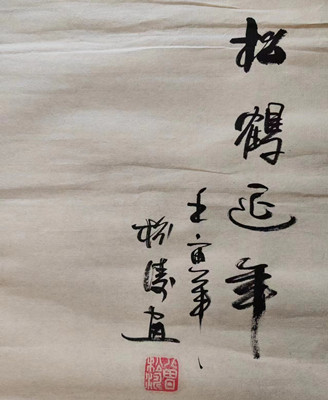 松鹤延年
壬寅年
松涛画